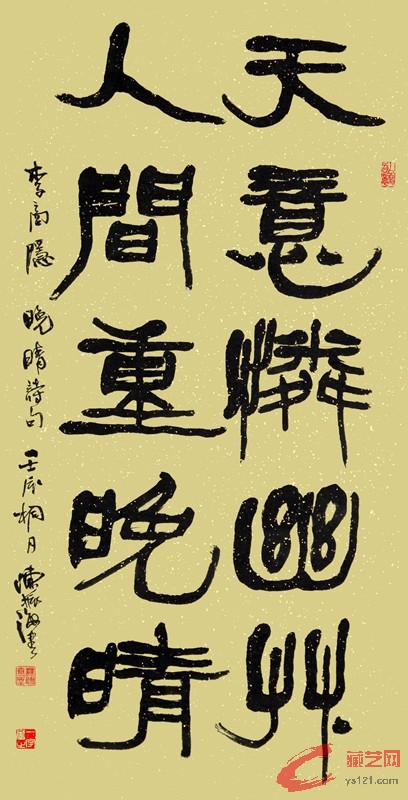 天意憐幽艸
人間重晚晴
李商隱 晚晴詩句 壬辰桐月
藏艺网
ys121.com